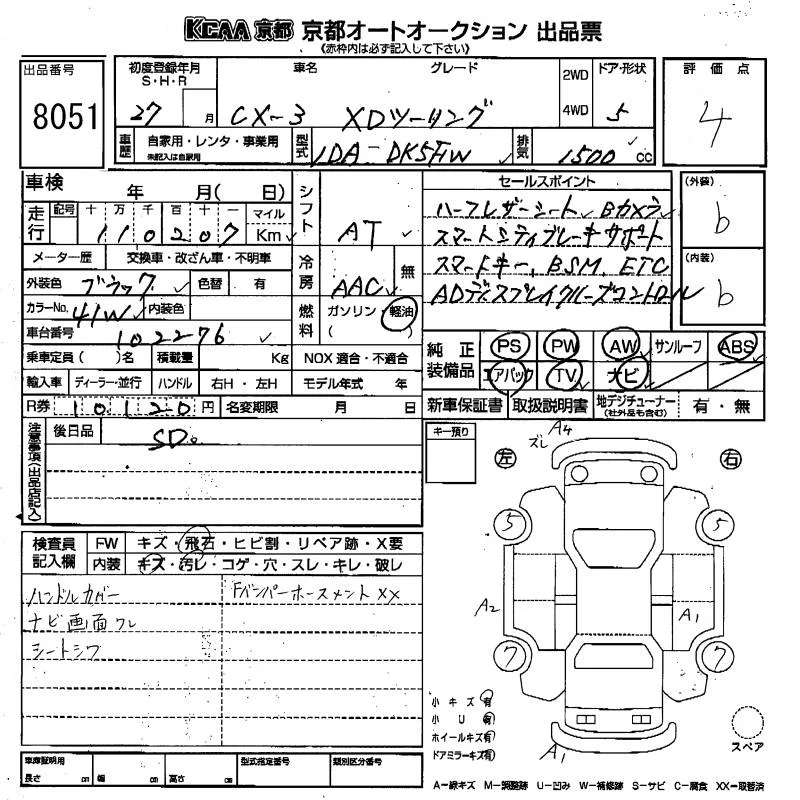 KCAA 京都 京都オートオークション 出品票
《赤枠内は必ず記入して下さい》
出品番号
8051
初度登録年月
S・H・R
27 月
車名
CX-3
グレード
XDツーリング
2WD
4WD
ドア・形状
5
評価点
4
車歴
自家用・レンタ・事業用
未記入は自家用
型式
LDA-DK5FW
排気
1500 cc
車検 年 月( 日)
走行
記号 十 万 千 百 十 一 マイル
110207 Km
メーター歴 交換車・改ざん車・不明車
外装色 ブラック 色替 有
カラーNo. 41W 内装色
車台番号
102276
乗車定員( )名 積載量 Kg
輸入車 ディーラー・並行 ハンドル 右H・左H
R券 10120 円 名変期限 月 日
シフト
AT
冷房
AAC 無
燃料
ガソリン・軽油
( )
NOX 適合・不適合
モデル年式 年
セールスポイント
ハーフレザーシート Bカメラ
スマートシティブレーキサポート
スマートキー、BSM、ETC
ADディスプレイクルーズコントロール
(外装)
b
(内装)
b
純正装備品
PS PW AW サンルーフ ABS
エアバック TV ナビ
新車保証書 取扱説明書 地デジチューナー 有・無
(社外品も含む)
注意事項(出品店記入)
後日品
SD。
キー預り
検査員記入欄
FW キズ・飛石・ヒビ割・リペア跡・X要
内装 キズ・汚レ・コゲ・穴・スレ・キレ・破レ
ハンドルカバー
Fバンパーホースメント XX
ナビ画面クレ
シートシワ
左 右
A4
ズレ
5 5
A2 A1
7 7
A1
スペア
小キズ 有
小U 有
ホイールキズ 有
ドアミラーキズ 有
車庫証明用
長さ cm 幅 cm 高さ cm
型式指定番号
類別区分番号
A−線キズ M−調整跡 U−凹み W−補修跡 S−サビ C−腐食 XX−取替済